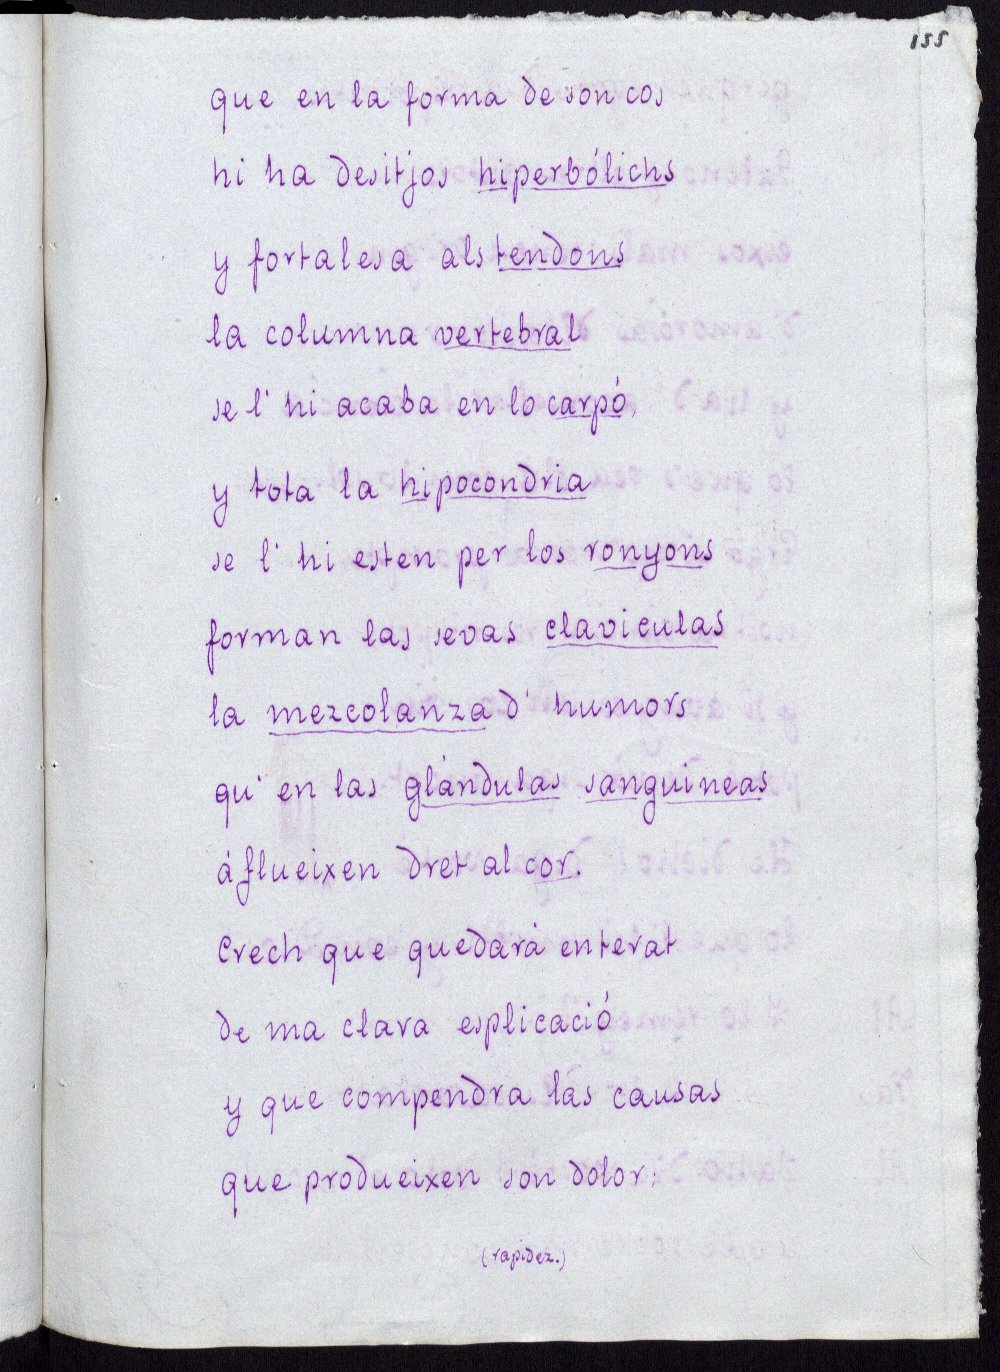 155
que en la forma de son cos
hi ha desitjos hiperbólichs
y fortalesa als tendons
la columna vertebral
se l' hi acaba en lo carpó,
y tota la hipocondria
se l' hi esten per los ronyons
forman las sevas claviculas
la mezcolanza d' humors
qu' en las glándulas sanguineas
áflueixen dret al cor.
Crech que quedará enterat
de ma clara esplicació
y que compendra las causas
que produeixen son dolor;
(rapidez.)